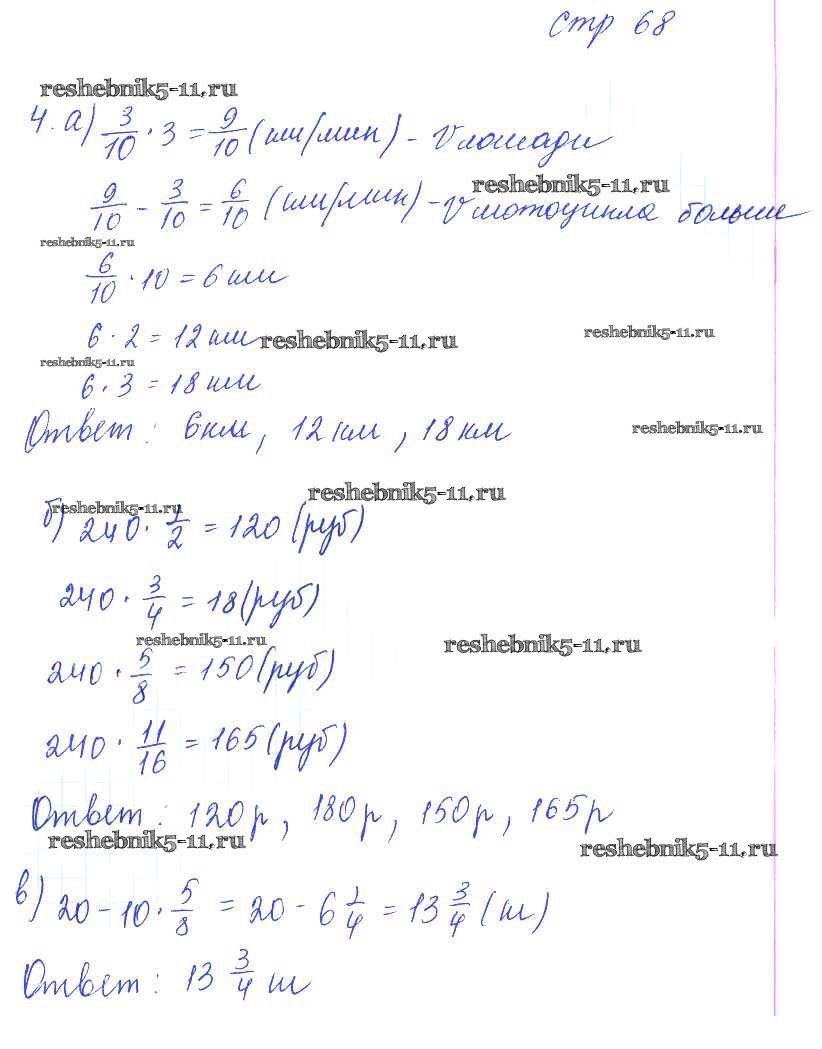 стр 68
reshebnik5-11.ru
4. а) 3/10 · 3 = 9/10 (км/мин) - V лошади
reshebnik5-11.ru
9/10 - 3/10 = 6/10 (км/мин) - V мотоцикла больше
reshebnik5-11.ru
6/10 · 10 = 6 км
6 · 2 = 12 км
reshebnik5-11.ru
reshebnik5-11.ru
reshebnik5-11.ru
6 · 3 = 18 км
Ответ: 6 км, 12 км, 18 км
reshebnik5-11.ru
reshebnik5-11.ru
reshebnik5-11.ru
б) 240 · 1/2 = 120 (руб)
240 · 3/4 = 18 (руб)
reshebnik5-11.ru
reshebnik5-11.ru
240 · 5/8 = 150 (руб)
240 · 11/16 = 165 (руб)
Ответ: 120 р, 180 р, 150 р, 165 р
reshebnik5-11.ru
reshebnik5-11.ru
в) 20 - 10 · 5/8 = 20 - 6 1/4 = 13 3/4 (м)
Ответ: 13 3/4 м